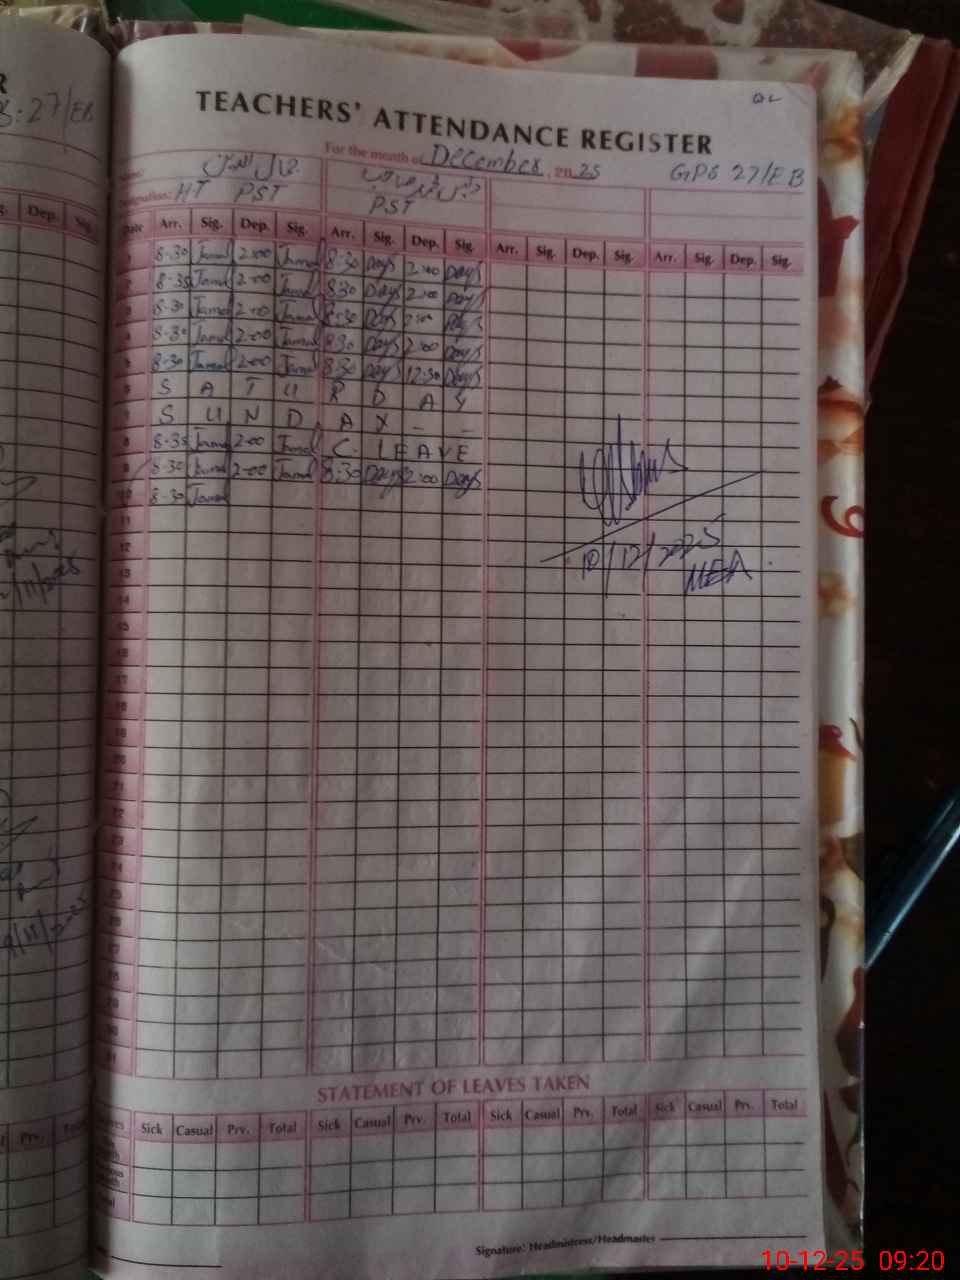 TEACHERS' ATTENDANCE REGISTER
For the month of December, 2025 GPS 27/EB
جمال الدین
Designation: HT PST PST
Date Arr. Sig. Dep. Sig. Arr. Sig. Dep. Sig. Arr. Sig. Dep. Sig. Arr. Sig. Dep. Sig.
1 8-30 Jamal 2-00 Jamal 8:30 2:00
2 8-35 Jamal 2-00 Jamal 8:30 2:00
3 8-30 Jamal 2-00 Jamal 8:30 2:00
4 8-30 Jamal 2-00 Jamal 8:30 2:00
5 8-30 Jamal 2-00 Jamal 8:30 12:30
6 S A T U R D A Y
7 S U N D A Y - -
8 8-35 Jamal 2-00 Jamal C. LEAVE
9 8-30 Jamal 2-00 Jamal 8:30 2:00
10 8-30 Jamal
11
12
13
14
15
16
17
18
19
20
21
22
23
24
25
26
27
28
29
30
31
10/12/2025
MEA
STATEMENT OF LEAVES TAKEN
Sick Casual Prv. Total Sick Casual Prv. Total Sick Casual Prv. Total Sick Casual Prv. Total
Signature: Headmistress/Headmaster
10-12-25 09:20